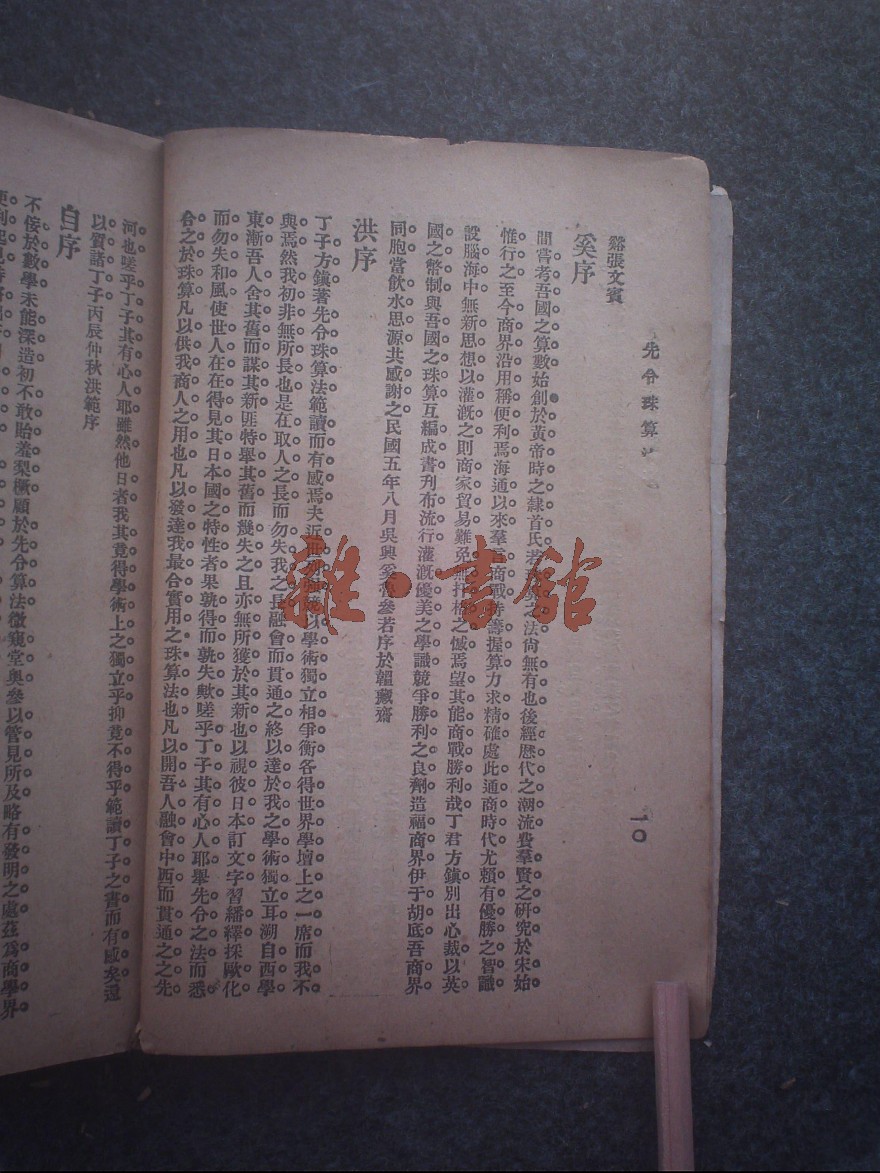 先令珠算法
一〇
谿張文賓
奚序
間嘗考吾國之算數始創於黃帝時之隸首氏若珠算之法尙無有也後經歷代之潮流費羣賢之研究於宋始
惟行之至今商界沿用稱便利焉海通以來羣商戰持籌握算力求精確處此通商時代尤賴有優勝之智識
設腦海中無新思想以灌漑之則商家貿易難免無扞格之憾焉望其能商戰勝利哉丁君方鎭別出心裁以英
國之幣制與吾國之珠算互編成書刋布流行灌漑優美之學識競爭勝利之良劑造福商界伊于胡底吾商界
同胞當飮水思源共感謝之民國五年八月吳興奚 參若序於韞藏齋
洪序
丁子方鎭著先令珠算法範讀而有感焉夫近世列國競以學術獨立相爭衡各得世界學壇上之一席而我不
與焉然我初非無所長也是在取人之長而勿失我之長融會而貫通之終以達於我之學術獨立耳溯自西學
東漸吾人舍其舊而謀其新匪特舉其舊而幾失之且亦無所獲於其新也以視彼日本訂文字習繙繹採歐化
而勿失和風使世人在在得見其日本國之特性者果孰得而孰失歟嗟乎丁子其有心人耶舉先令之法而悉
合之於珠算凡以供我商人之用也凡以發達我最合實用之珠算法也凡以開吾人融會中西而貫通之之先
河也嗟乎丁子其有心人耶雖然他日者我其竟得學術上之獨立乎抑竟不得乎範讀丁子之書而有感矣還
以質諸丁子丙辰仲秋洪範序
自序
不佞於數學未能深造初不敢貽羞梨橛顧於先令算法微窺堂奧參以管見所及略有發明之處茲爲商學界
便利起見
雜·書館